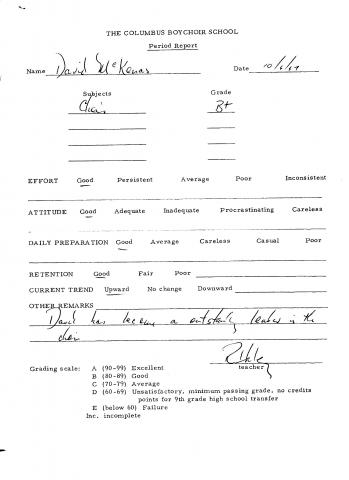 THE COLUMBUS BOYCHOIR SCHOOL
Period Report
Name David McKenas Date
Subjects Grade
Choir B+
EFFORT Good Persistent Average Poor Inconsistent
ATTITUDE Good Adequate Inadequate Procrastinating Careless
DAILY PREPARATION Good Average Careless Casual Poor
RETENTION Good Fair Poor
CURRENT TREND Upward No change Downward
OTHER REMARKS
David has become a outstanding leader in the
choir
teacher
Grading scale: A (90-99) Excellent
B (80-89) Good
C (70-79) Average
D (60-69) Unsatisfactory, minimum passing grade, no credits
points for 9th grade high school transfer
E (below 60) Failure
Inc. incomplete